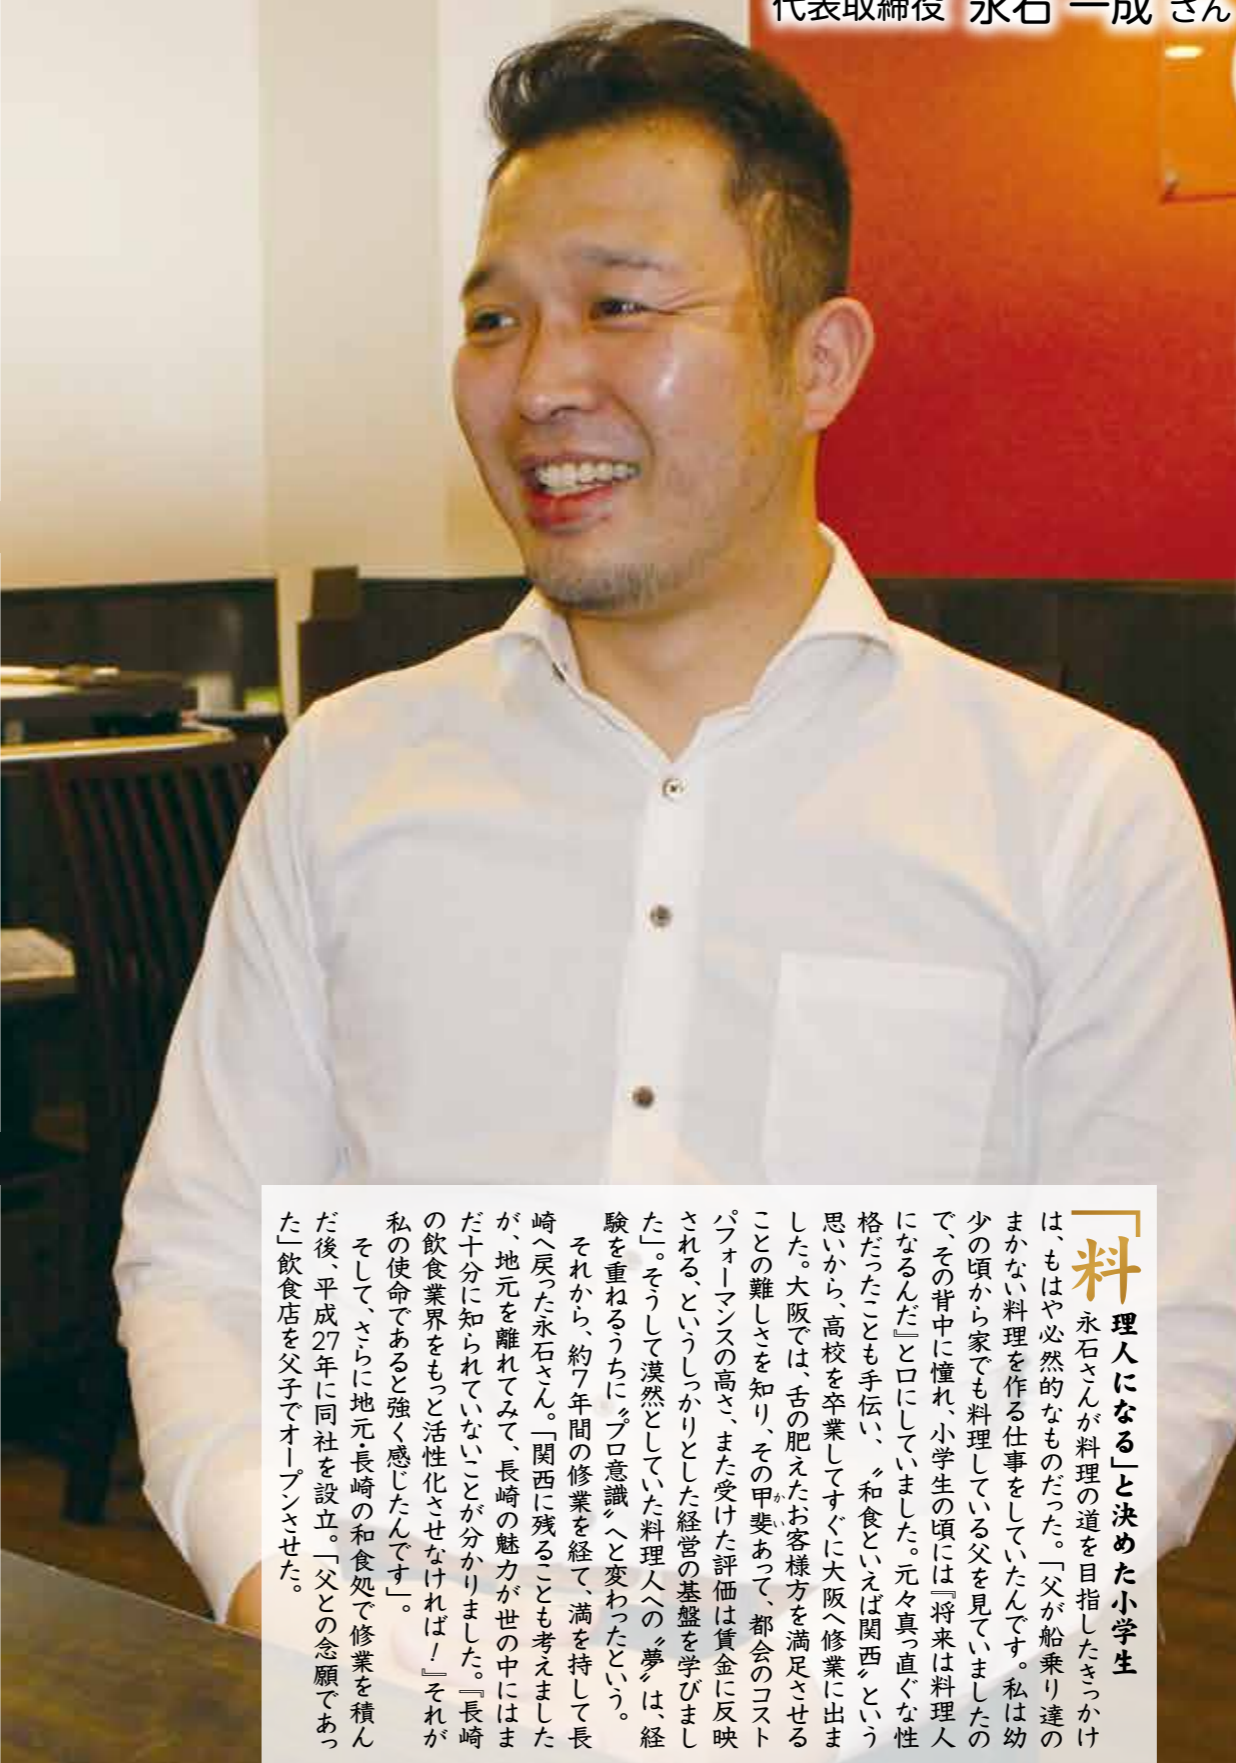 代表取締役 永石 一成 さん
「料理人になる」と決めた小学生
永石さんが料理の道を目指したきっかけ
は、もはや必然的なものだった。「父が船乗り達の
まかない料理を作る仕事をしていたんです。私は幼
少の頃から家でも料理している父を見ていましたの
で、その背中に憧れ、小学生の頃には『将来は料理人
になるんだ』と口にしていました。元々真っ直ぐな性
格だったことも手伝い、〝和食といえば関西〟という
思いから、高校を卒業してすぐに大阪へ修業に出ま
した。大阪では、舌の肥えたお客様方を満足させる
ことの難しさを知り、その甲斐あって、都会のコスト
パフォーマンスの高さ、また受けた評価は賃金に反映
される、というしっかりとした経営の基盤を学びまし
た」。そうして漠然としていた料理人への〝夢〟は、経
験を重ねるうちに〝プロ意識〟へと変わったという。
それから、約7年間の修業を経て、満を持して長
崎へ戻った永石さん。「関西に残ることも考えました
が、地元を離れてみて、長崎の魅力が世の中にはま
だ十分に知られていないことが分かりました。『長崎
の飲食業界をもっと活性化させなければ!』それが
私の使命であると強く感じたんです」。
そして、さらに地元・長崎の和食処で修業を積ん
だ後、平成27年に同社を設立。「父との念願であっ
た」飲食店を父子でオープンさせた。